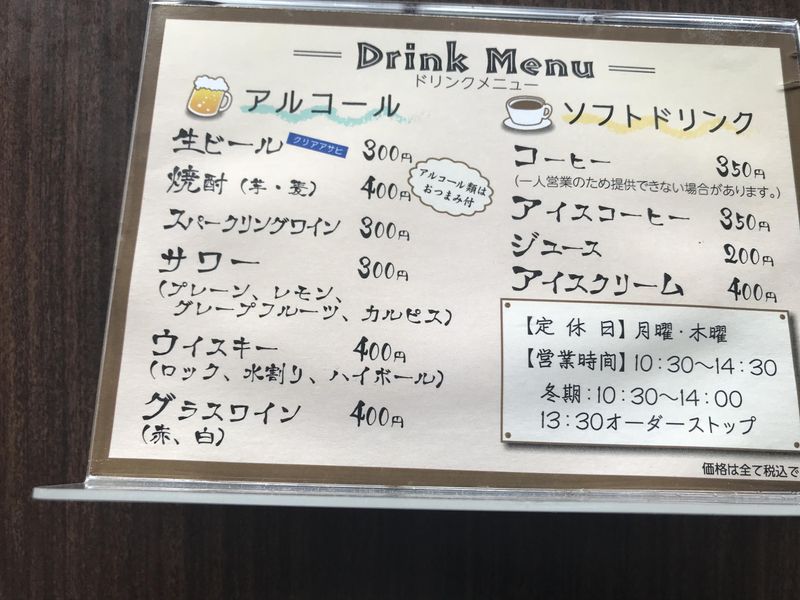 Drink Menu
ドリンクメニュー
アルコール
生ビール クリアアサヒ 300円
焼酎（芋・麦） 400円
アルコール類は
おつまみ付
スパークリングワイン 300円
サワー 300円
（プレーン、レモン、
グレープフルーツ、カルピス）
ウイスキー 400円
（ロック、水割り、ハイボール）
グラスワイン 400円
（赤、白）
ソフトドリンク
コーヒー 350円
（一人営業のため提供できない場合があります。）
アイスコーヒー 350円
ジュース 200円
アイスクリーム 400円
【定休日】月曜・木曜
【営業時間】10:30～14:30
冬期：10:30～14:00
13:30オーダーストップ
価格は全て税込で